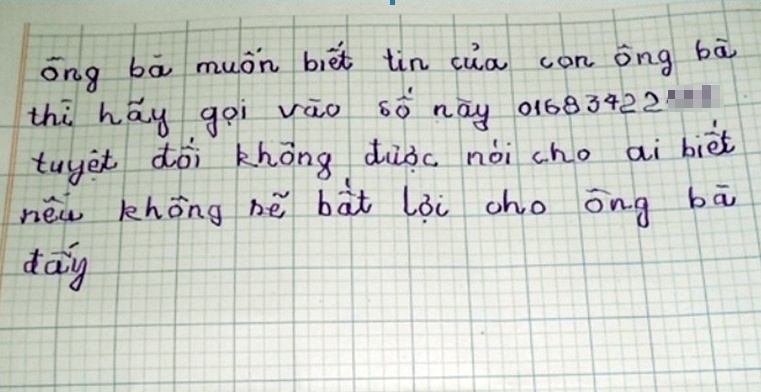 ông bà muốn biết tin của con ông bà
thì hãy gọi vào số này 01683422
tuyệt đối không được nói cho ai biết
nếu không sẽ bất lợi cho ông bà
đấy